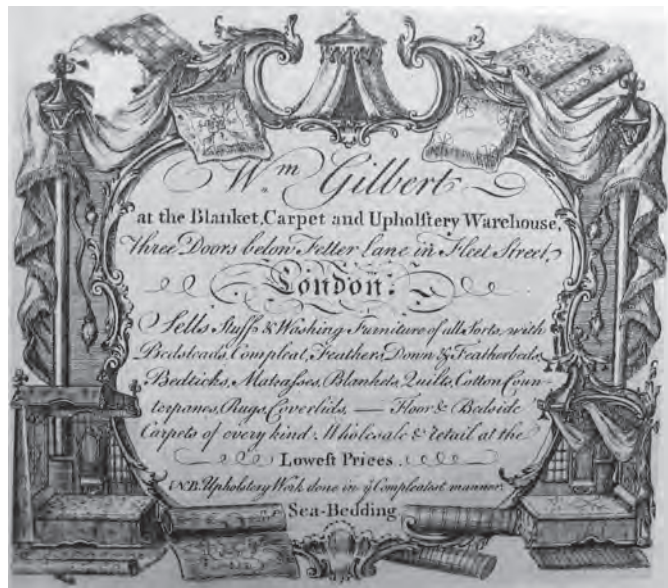 Wm Gilbert
at the Blanket, Carpet and Upholſtery Warehouse,
three Doors below Fetter Lane in Fleet Street,
London.
Sells Stuff & Washing Furniture of all Sorts, with
Bedsteads, Compleat, Feathers, Down & Featherbeds,
Bedticks, Matraſses, Blankets, Quilts, Cotton Coun-
terpanes, Rugs, Coverlids, — Floor & Bedside
Carpets of every kind. Wholesale & retail at the
Loweſt Prices.
N.B. Upholstery Work done in ye Compleatest manner.
Sea-Bedding